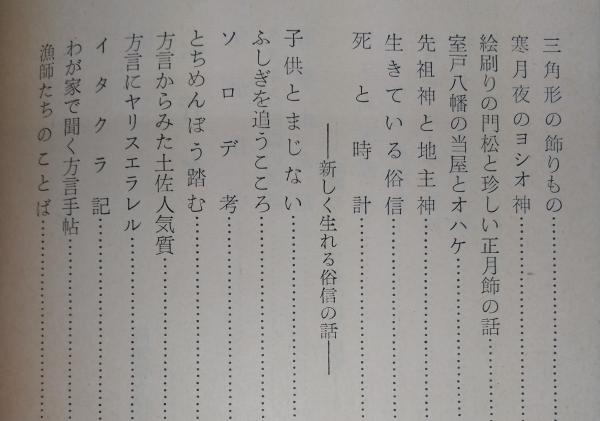 三角形の飾りもの
寒月夜のヨシオ神
絵刷りの門松と珍しい正月飾の話
室戸八幡の当屋とオハケ
先祖神と地主神
生きている俗信
死と時計
――新しく生れる俗信の話――
子供とまじない
ふしぎを追うこころ
ソロデ考
とちめんぼう踏む
方言からみた土佐人気質
方言にヤリスエラレル
イタクラ記
わが家で聞く方言手帖
漁師たちのことば